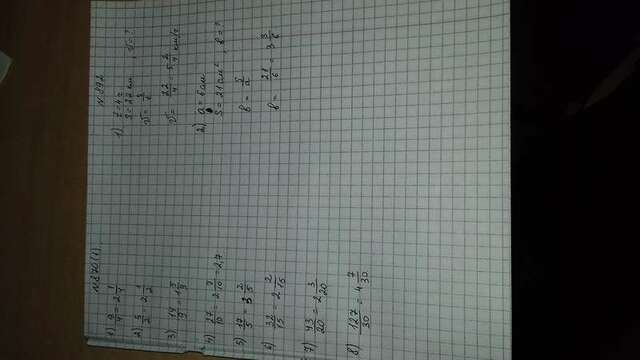 N 870(1)
1) 9/4 = 2 1/4
2) 5/2 = 2 1/2
3) 14/9 = 1 5/9
4) 27/10 = 2 7/10 = 2,7
5) 17/5 = 3 2/5
6) 32/15 = 2 2/15
7) 43/20 = 2 3/20
8) 127/30 = 4 7/30
N 892
1) t = 4 ч
S = 22 км , v = ?
v = S/t
v = 22/4 = 5 2/4 км/ч
2) a = 6 см
S = 21 см² , b = ?
b = S/a
b = 21/6 = 3 3/6